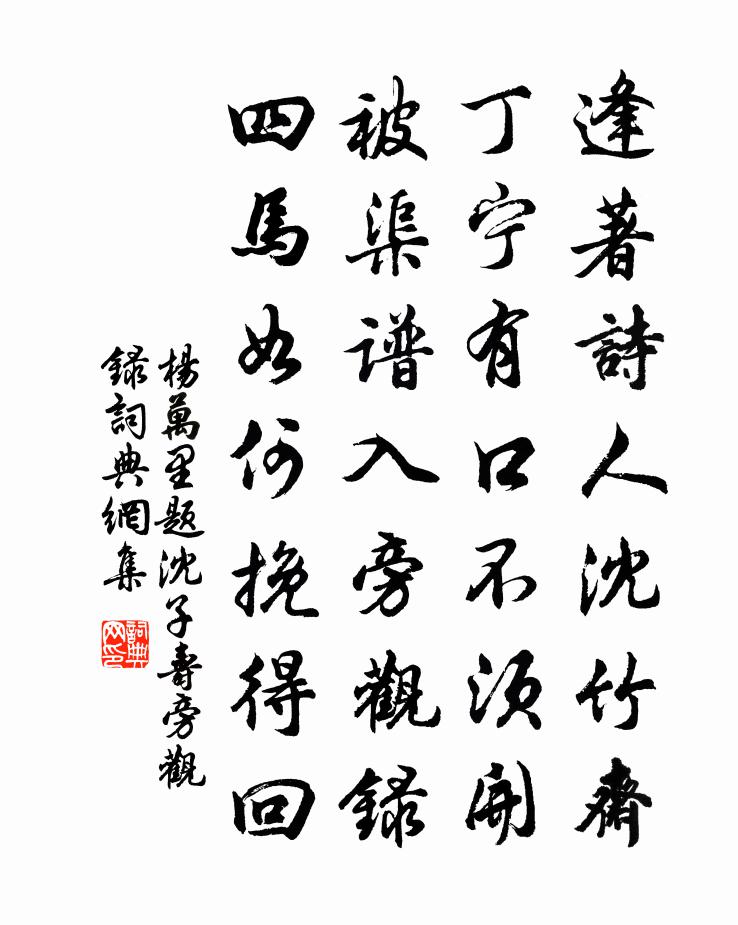 逢著詩人沈竹齋
丁宁有口不須開
被渠谱入旁觀錄
四馬如何挽得回
楊萬里题沈子壽旁觀
錄詞典網集
詞典网印